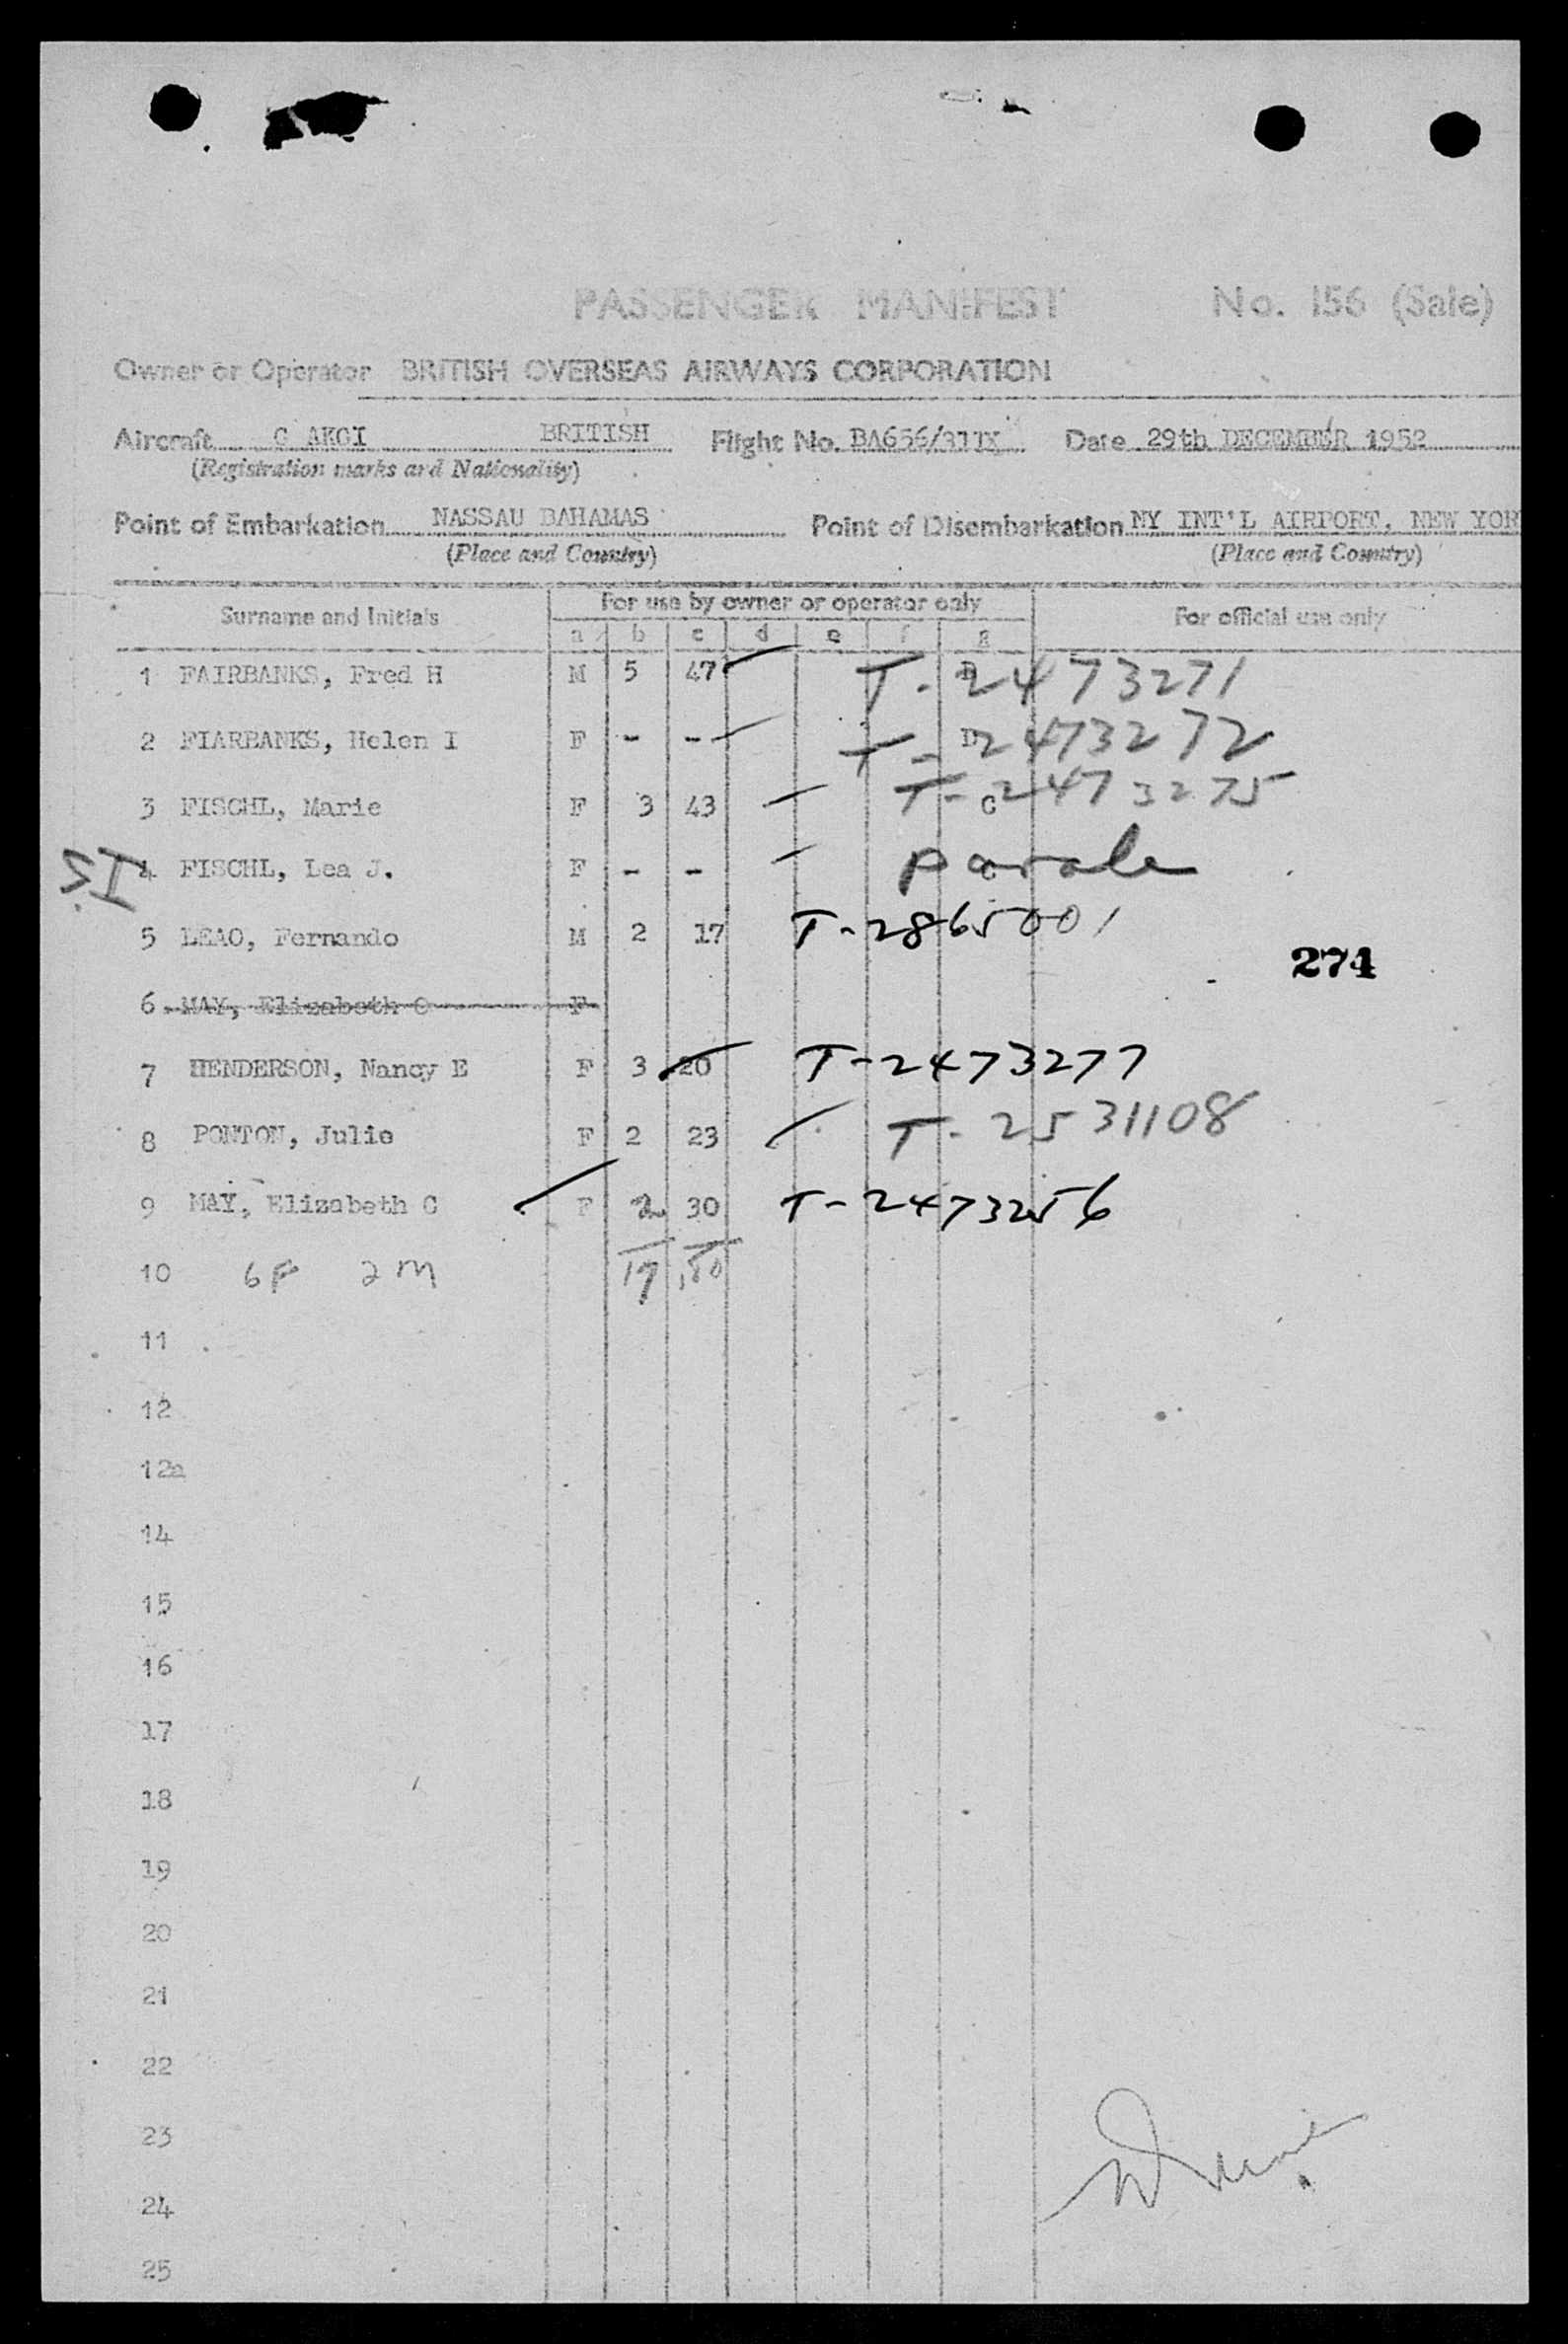 PASSENGER MANIFEST No. 156 (Sale)
Owner or Operator BRITISH OVERSEAS AIRWAYS CORPORATION
Aircraft G AKGI BRITISH Flight No. BA656/311X Date 29th DECEMBER 1952
(Registration marks and Nationality)
Point of Embarkation NASSAU BAHAMAS Point of Disembarkation NY INT'L AIRPORT, NEW YOR
(Place and Country) (Place and Country)
Surname and Initials For use by owner or operator only For official use only
a b c d e f g
1 FAIRBANKS, Fred H M 5 47 T-2473271
2 FIARBANKS, Helen I F - - D T-2473272
3 FISCHL, Marie F 3 43 C T-2473275
SI 4 FISCHL, Lea J. F - - C Parole
5 LEAO, Fernando M 2 17 T-2865001
274
6 MAY, Elizabeth C F
7 HENDERSON, Nancy E F 3 20 T-2473277
8 PONTON, Julie F 2 23 T-2531108
9 MAY, Elizabeth C F 2 30 T-2473256
10 6F 2M 17 ,80
11
12
12a
14
15
16
17
18
19
20
21
22
23
24
25